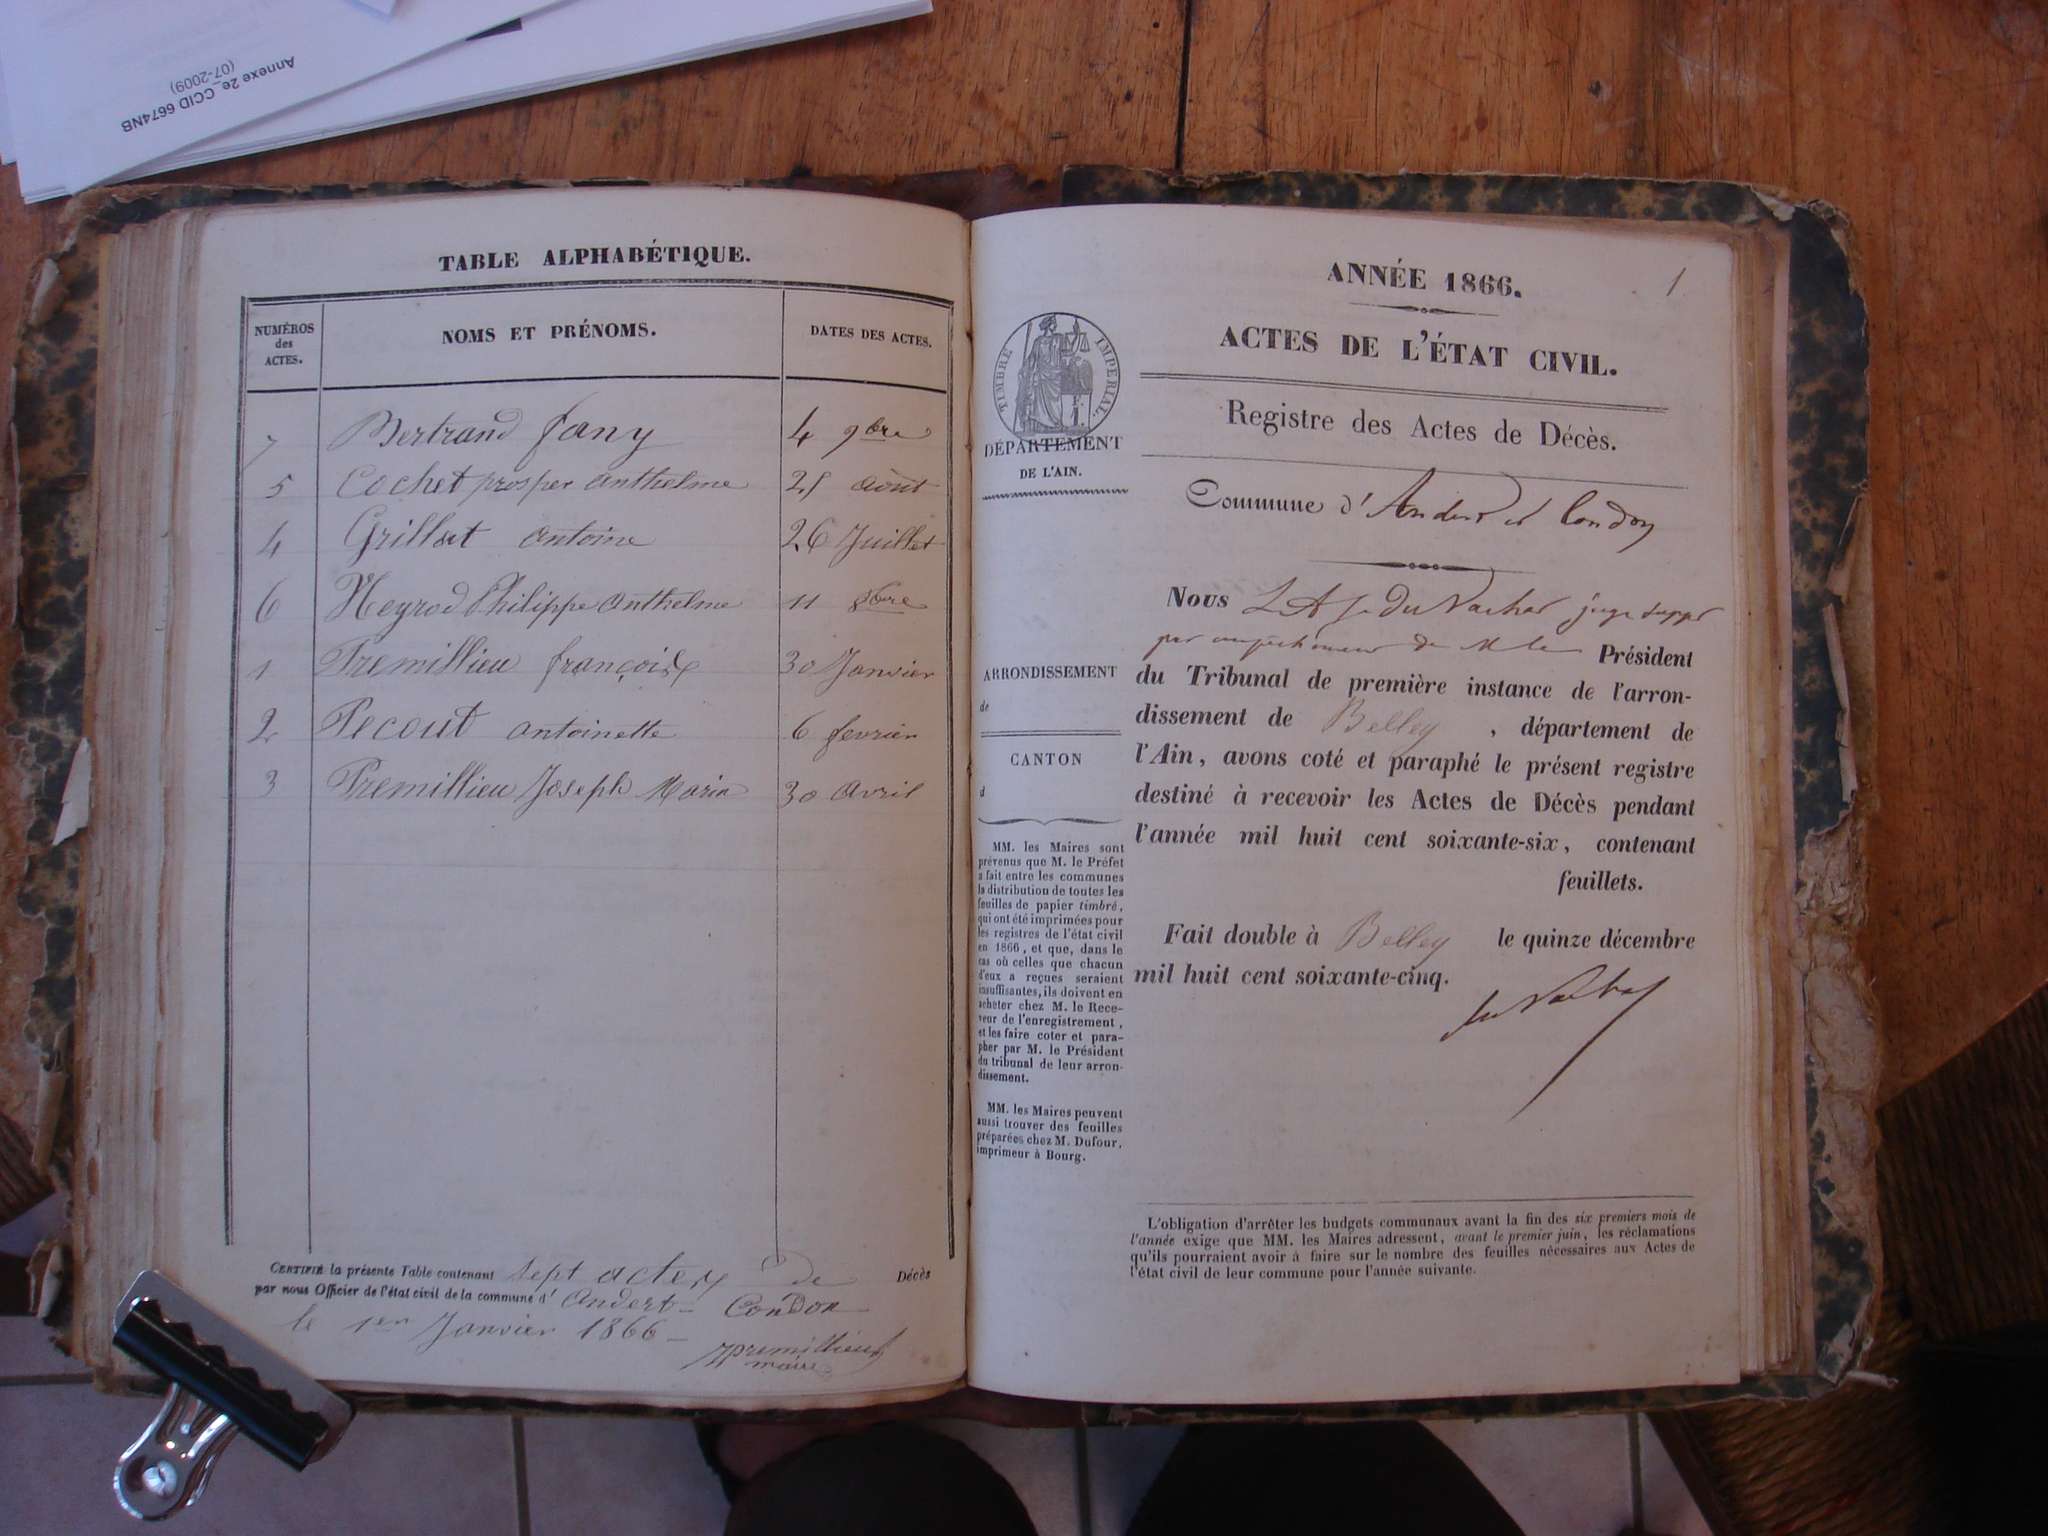 Annexe 2e_CCID 6674NB
(07-2009)
TABLE ALPHABÉTIQUE.
NUMÉROS des ACTES. NOMS ET PRÉNOMS. DATES DES ACTES.
7 Bertrand fany 4 9bre
5 Cochet prosper anthelme 25 août
4 Grillat antoine 26 Juillet
6 Neyrod Philippe anthelme 11 8bre
1 Premillieu françoise 30 Janvier
2 Pecout antoinette 6 fevrier
3 Premillieu Joseph Marie 30 avril
CERTIFIÉ la présente Table contenant sept actes de Décès
par nous Officier de l'état civil de la commune d' andert- Condon
le 1er Janvier 1866
Premillieux
maire
1
ANNÉE 1866.
ACTES DE L'ÉTAT CIVIL.
Registre des Actes de Décès.
TIMBRE IMPÉRIAL.
DÉPARTEMENT
DE L'AIN.
Commune d' Andert et Condon
Nous juge suppt
par empêchement de M le Président
du Tribunal de première instance de l'arron-
dissement de Belley , département de
l'Ain, avons coté et paraphé le présent registre
destiné à recevoir les Actes de Décès pendant
l'année mil huit cent soixante-six, contenant
feuillets.
Fait double à Belley le quinze décembre
mil huit cent soixante-cinq.
ARRONDISSEMENT
de
CANTON
d
MM. les Maires sont
prévenus que M. le Préfet
a fait entre les communes
la distribution de toutes les
feuilles de papier timbré,
qui ont été imprimées pour
les registres de l'état civil
en 1866, et que, dans le
cas où celles que chacun
d'eux a reçues seraient
insuffisantes, ils doivent en
acheter chez M. le Rece-
veur de l'enregistrement,
et les faire coter et para-
pher par M. le Président
du tribunal de leur arron-
dissement.
MM. les Maires peuvent
aussi trouver des feuilles
préparées chez M. Dufour,
imprimeur à Bourg.
L'obligation d'arrêter les budgets communaux avant la fin des six premiers mois de
l'année exige que MM. les Maires adressent, avant le premier juin, les réclamations
qu'ils pourraient avoir à faire sur le nombre des feuilles nécessaires aux Actes de
l'état civil de leur commune pour l'année suivante.